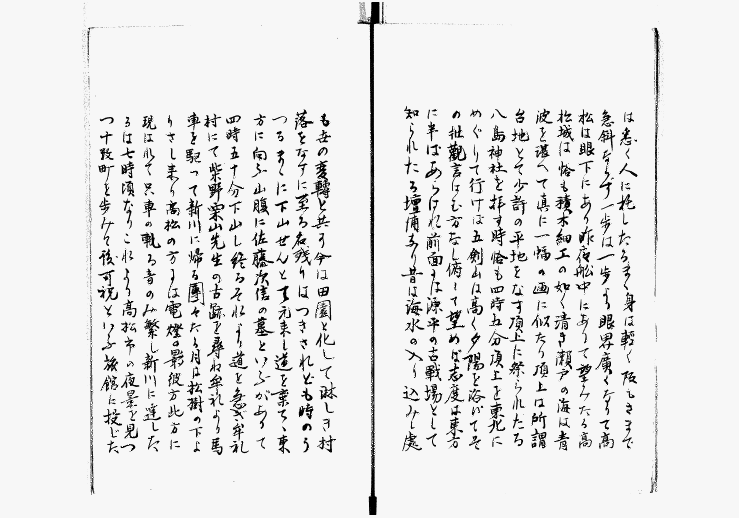 は悉く人に托したるまゝ身は軽く坂もさまで
急斜ならず一歩は一歩より眼界廣くなりて高
松は眼下にあり昨夜船中にありて望みたる高
松城は恰も積木細工の如く清き瀬戸の海は青
波を湛へて真に一幅の画に似たり頂上は所謂
台地とて少許の平地をなす頂上に祭られたる
八島神社を拝す時恰も四時五分頂上を東北に
めぐりて行けば五剣山は高く夕陽を浴びてそ
の壮觀言はむ方なし俯して望めば志度は東方
に半ばあらはれ前面は源平の古戰場として
知られたる壇浦あり昔は海水の入り込みし處
も世の変轉と共に今は田園と化して淋しき村
落をなすに至る名残りはつきされども時のう
つるまゝに下山せんとて元来し道を棄てゝ東
方に向ふ山腹に佐藤次信の墓といふがありて
四時五十分下山し終るそれより道を急ぎ牟礼
村にて柴野栗山先生の古跡を尋ね牟礼より馬
車を駆つて新川に帰る團々たる月は松樹の下よ
りさし来り高松の方には電燈の影彼方此方に
現はれて只車の軋る音のみ繁し新川に達した
るは七時頃なりこれより高松市の夜景を見つ
つ十数町を歩みて後可祝といふ旅館に投じた